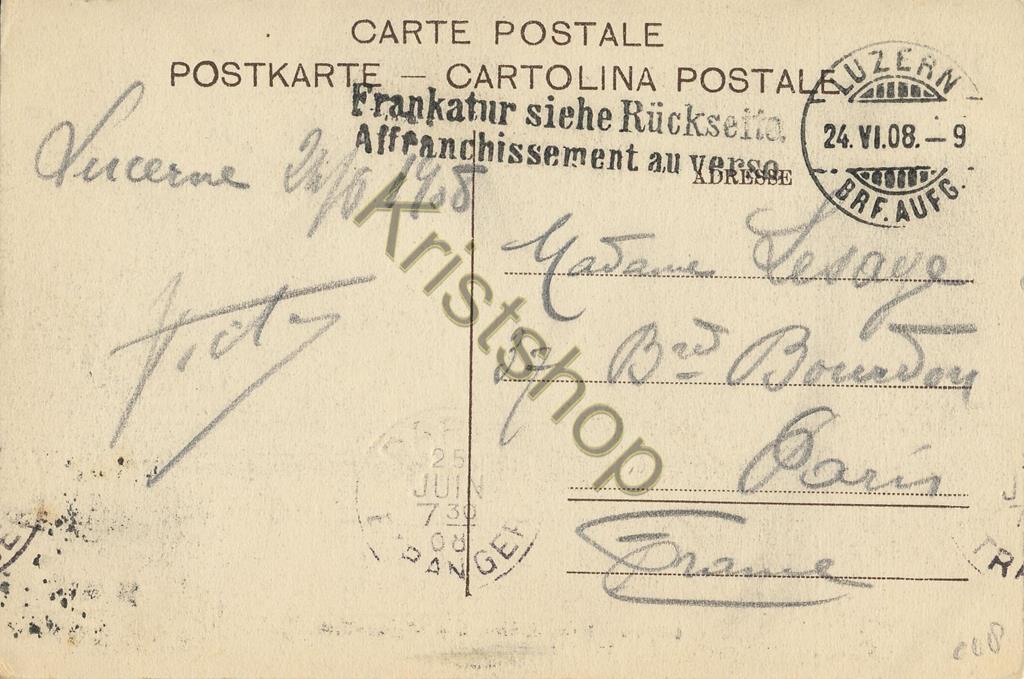 CARTE POSTALE
POSTKARTE — CARTOLINA POSTALE
Frankatur siehe Rückseite.
Affranchissement au verso.
ADRESSE
LUZERN
24.VI.08.–9
BRF.AUFG.
Lucerne 24/6 1908
Madame Lesage
Bᵈ Bourdon
Paris
France
25
JUIN
7 30
08
ETRANGER
Kristshop